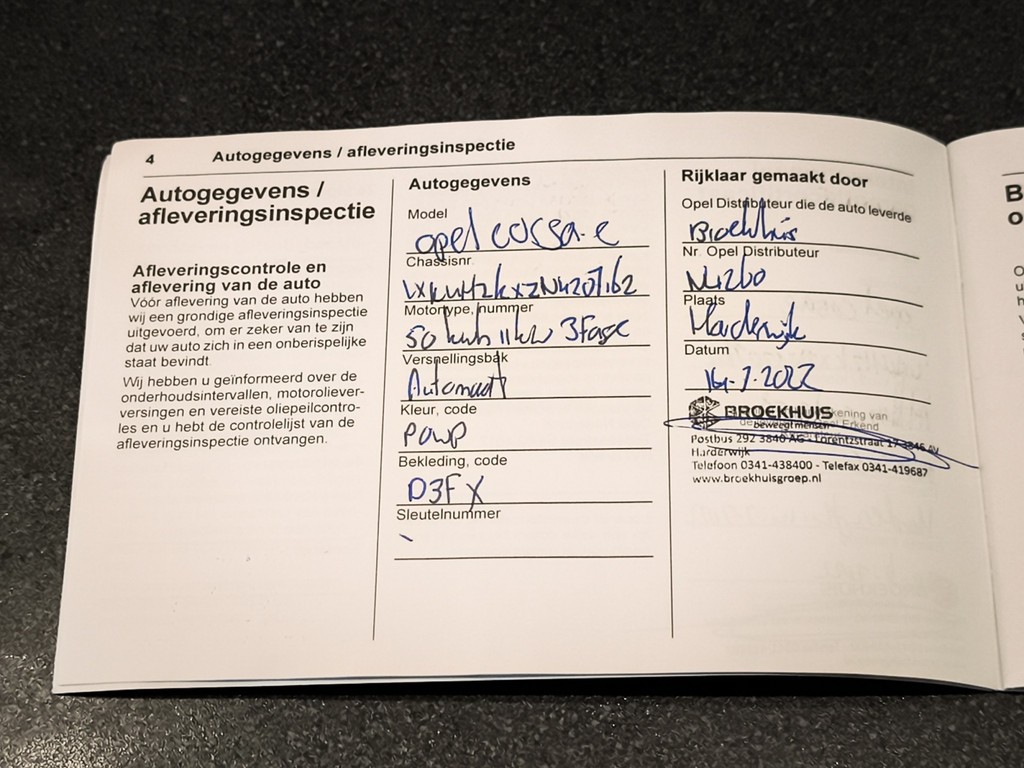 4 Autogegevens / afleveringsinspectie
Autogegevens /
afleveringsinspectie
Afleveringscontrole en
aflevering van de auto
Vóór aflevering van de auto hebben
wij een grondige afleveringsinspectie
uitgevoerd, om er zeker van te zijn
dat uw auto zich in een onberispelijke
staat bevindt.
Wij hebben u geïnformeerd over de
onderhoudsintervallen, motoroliever-
versingen en vereiste oliepeilcontro-
les en u hebt de controlelijst van de
afleveringsinspectie ontvangen.
Autogegevens
Model
Opel corsa-e
Chassisnr.
Motortype, nummer
50 kwh 11kw 3Fase
Versnellingsbak
Automaat
Kleur, code
POWP
Bekleding, code
D3FX
Sleutelnummer
-
Rijklaar gemaakt door
Opel Distributeur die de auto leverde
Broekhuis
Nr. Opel Distributeur
Plaats
Harderwijk
Datum
14-7-2022
BROEKHUIS
kening van
beweegt mensen Erkend
Postbus 292 3840 AG - Lorentzstraat 17 3846 AV
Harderwijk
Telefoon 0341-438400 - Telefax 0341-419687
www.broekhuisgroep.nl
B
o